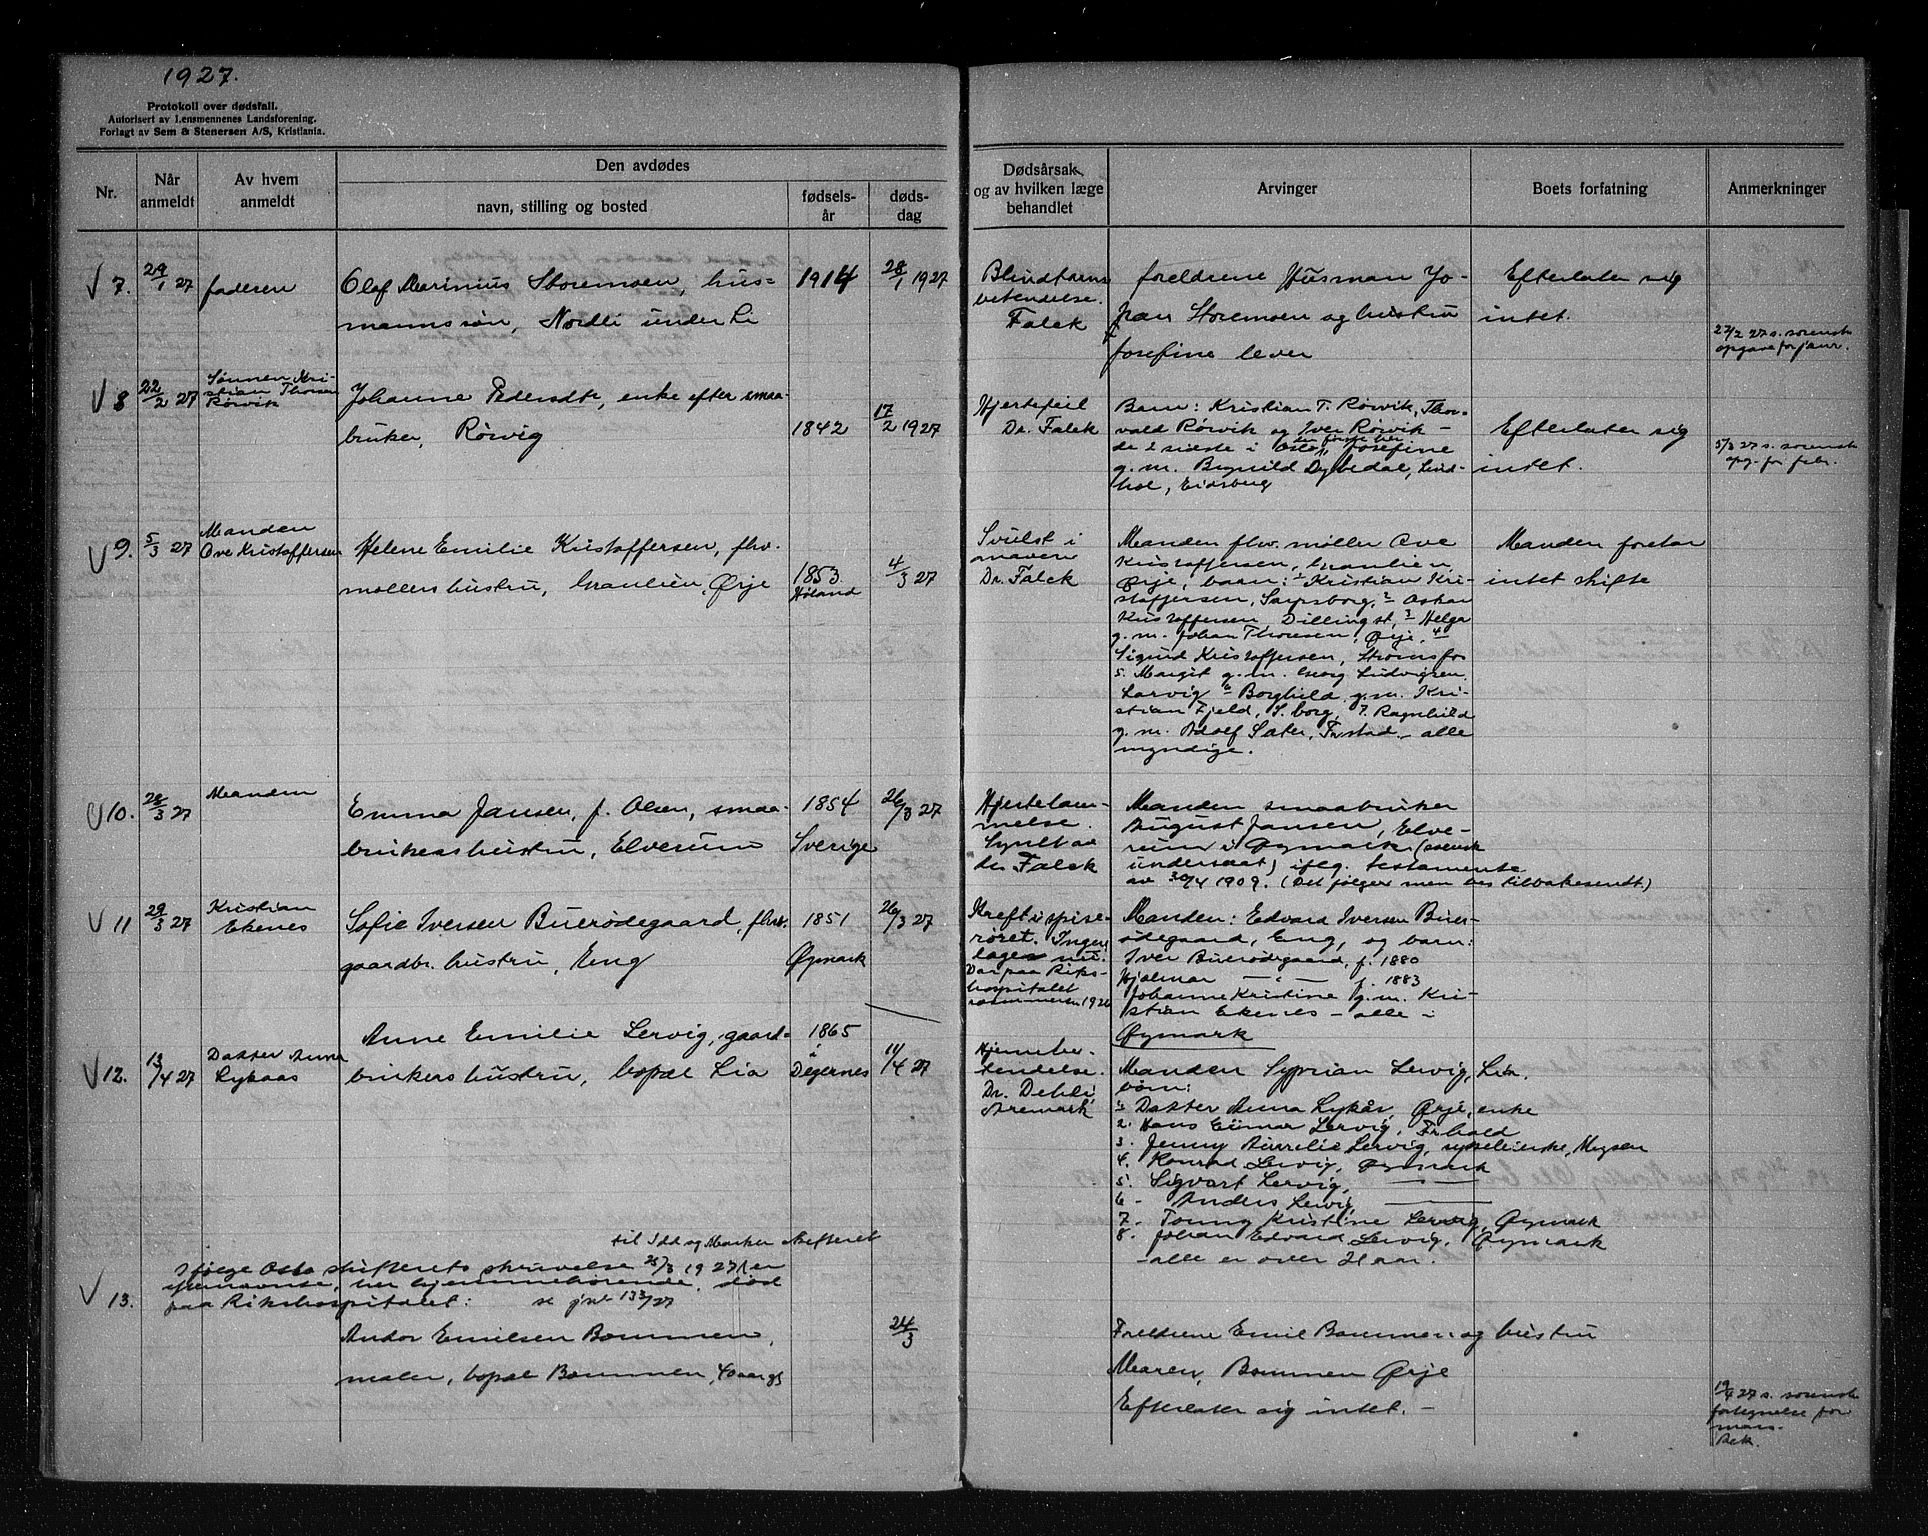 1927.
Protokoll over dødsfall.
Autorisert av Lensmennenes Landsforening.
Forlagt av Sem & Stenersen A/S, Kristiania.
Nr.
Når anmeldt
Av hvem anmeldt
Den avdødes
navn, stilling og bosted
fødsels-år
døds-dag
Dødsårsak, og av hvilken læge behandlet
Arvinger
Boets forfatning
Anmerkninger
V 7. 29/1 27 faderen
Olaf Marinius Storemoen, hus-
mannssøn, Nordli under Li
1914
28/1 1927
Blindtarms
betendelse.
Falck
foreldrene Husman Jo-
han Storemoen og hustru
Josefine lever
Efterlater sig
intet.
27/2 27 s. sorensk
opgave for jaur.
V 8 22/2 27
Sønnen Kri-
stian Thorsen
Rørvik
Johanne Pedersdtr, enke efter smaa-
bruker, Rørvig
1842
17/2 1927
Hjertefeil
Dr. Falck
Barn: Kristian T. Rørvik, Thor-
vald Rørvik og Iver Rørvik -
de 2 sidste i Oslo, den første her Josefine
g.m. Brynild Dybedal, Lind-
hol, Eidsberg
Efterlater sig
intet.
5/3 27 s. sorensk
opg. for febr.
V 9. 5/3 27
Manden
Ove Kristoffersen
Helene Emilie Kristoffersen, fhv.
møllers hustru, Granlien, Ørje
1853
Høland
4/3 27
Svulst i
maven
Dr. Falck
Manden fhv. møller Ove
Kristoffersen, Granlien,
Ørje, barn: 1 Kristian Kri-
stoffersen, Sarpsborg, 2 Oskar
Kristoffersen, Dilling st, 3 Helga
g.m. Johan Thoresen, Ørje, 4
Sigurd Kristoffersen, Strømsfos
5. Margit g.m. Georg Ludvigsen,
Larvig 6 Borghild g.m. Kri-
stian Fjeld, S.borg, 7. Ragnhild
g.m. Adolf Sæter, Fr.stad - alle
myndige.
Manden foretar
intet skifte
V 10. 28/3 27 Manden
Emma Jansen, f. Olsen, smaa-
brukers hustru, Elverum
1854
Sverige
26/3 27
Hjertelam-
melse.
Synet av
dr. Falck
Manden smaabruker
August Jansen, Elve-
rum i Øymark (svensk
undersaat) iflg. testamente
av 30/4 1909. (Det følger men bes tilbakesendt)
V 11 29/3 27
Kristian
Ekenes
Sofie Iversen Buerødegaard, fhv.
gaardbr. hustru, Eng
1851
Øymark
26/3 27
Kreft i spise-
røret. Ingen
læge nu.
Var paa Riks-
hospitalet
sommeren 1926
Manden: Edvard Iversen Buer-
ødegaard, Eng, og barn:
Iver Buerødegaard, f. 1880
Hjalmar — " — f. 1883
Johanne Kristine g.m. Kri-
stian Ekenes - alle i
Øymark
V 12. 13/4 27
Datter Anna
Lykaas
Anne Emilie Lervig, gaard-
brukers hustru, bopæl Lia
1865
i
Degernes
11/4 27
Hjernebe-
tendelse.
Dr. Dehli,
Aremark
Manden Syprian Lervig, Lia.
børn:
1. Datter Anna Lykås, Ørje, enke
2. Hans Einar Lervig, Fr.hald
3. Jenny Aurelie Lervig, sykepleierske, Mysen
4. Konrad Lervig, Øymark
5. Sigvart Lervig, — —
6 - Anders Lervig ——
7. Tonny Kristine Lervig, Øymark
8. Johan Edvard Lervig, Øymark
- alle er over 21 aar.
til Idd og Marker skifteret
V 13.
Ifølge Oslo skifterets skrivelse 25/3 1927 er
efternevnte, her hjemmehørende, død
paa Rikshospitalet: se jnr 133/27
Andor Emilsen Bommen,
maler, bopæl Bommen, 40 aar gl
24/3
Foreldrene Emil Bommen og hustru
Maren, Bommen Ørje
Efterlater sig intet. -
19/4 27 s. sorensk
fortegnelse for
mars.
Bek.